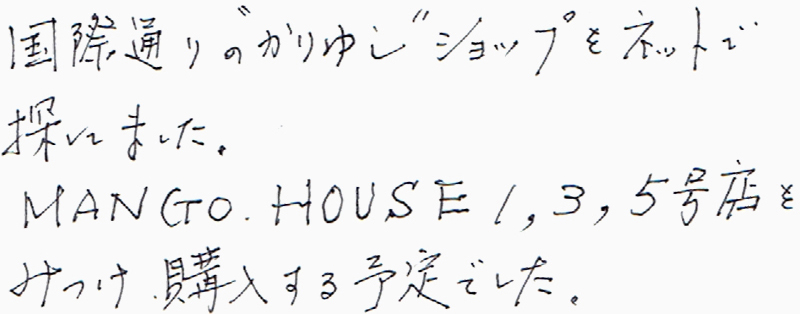 国際通りの"かりゆし"ショップをネットで
探していました。
MANGO.HOUSE 1,3,5号店を
みつけ購入する予定でした。